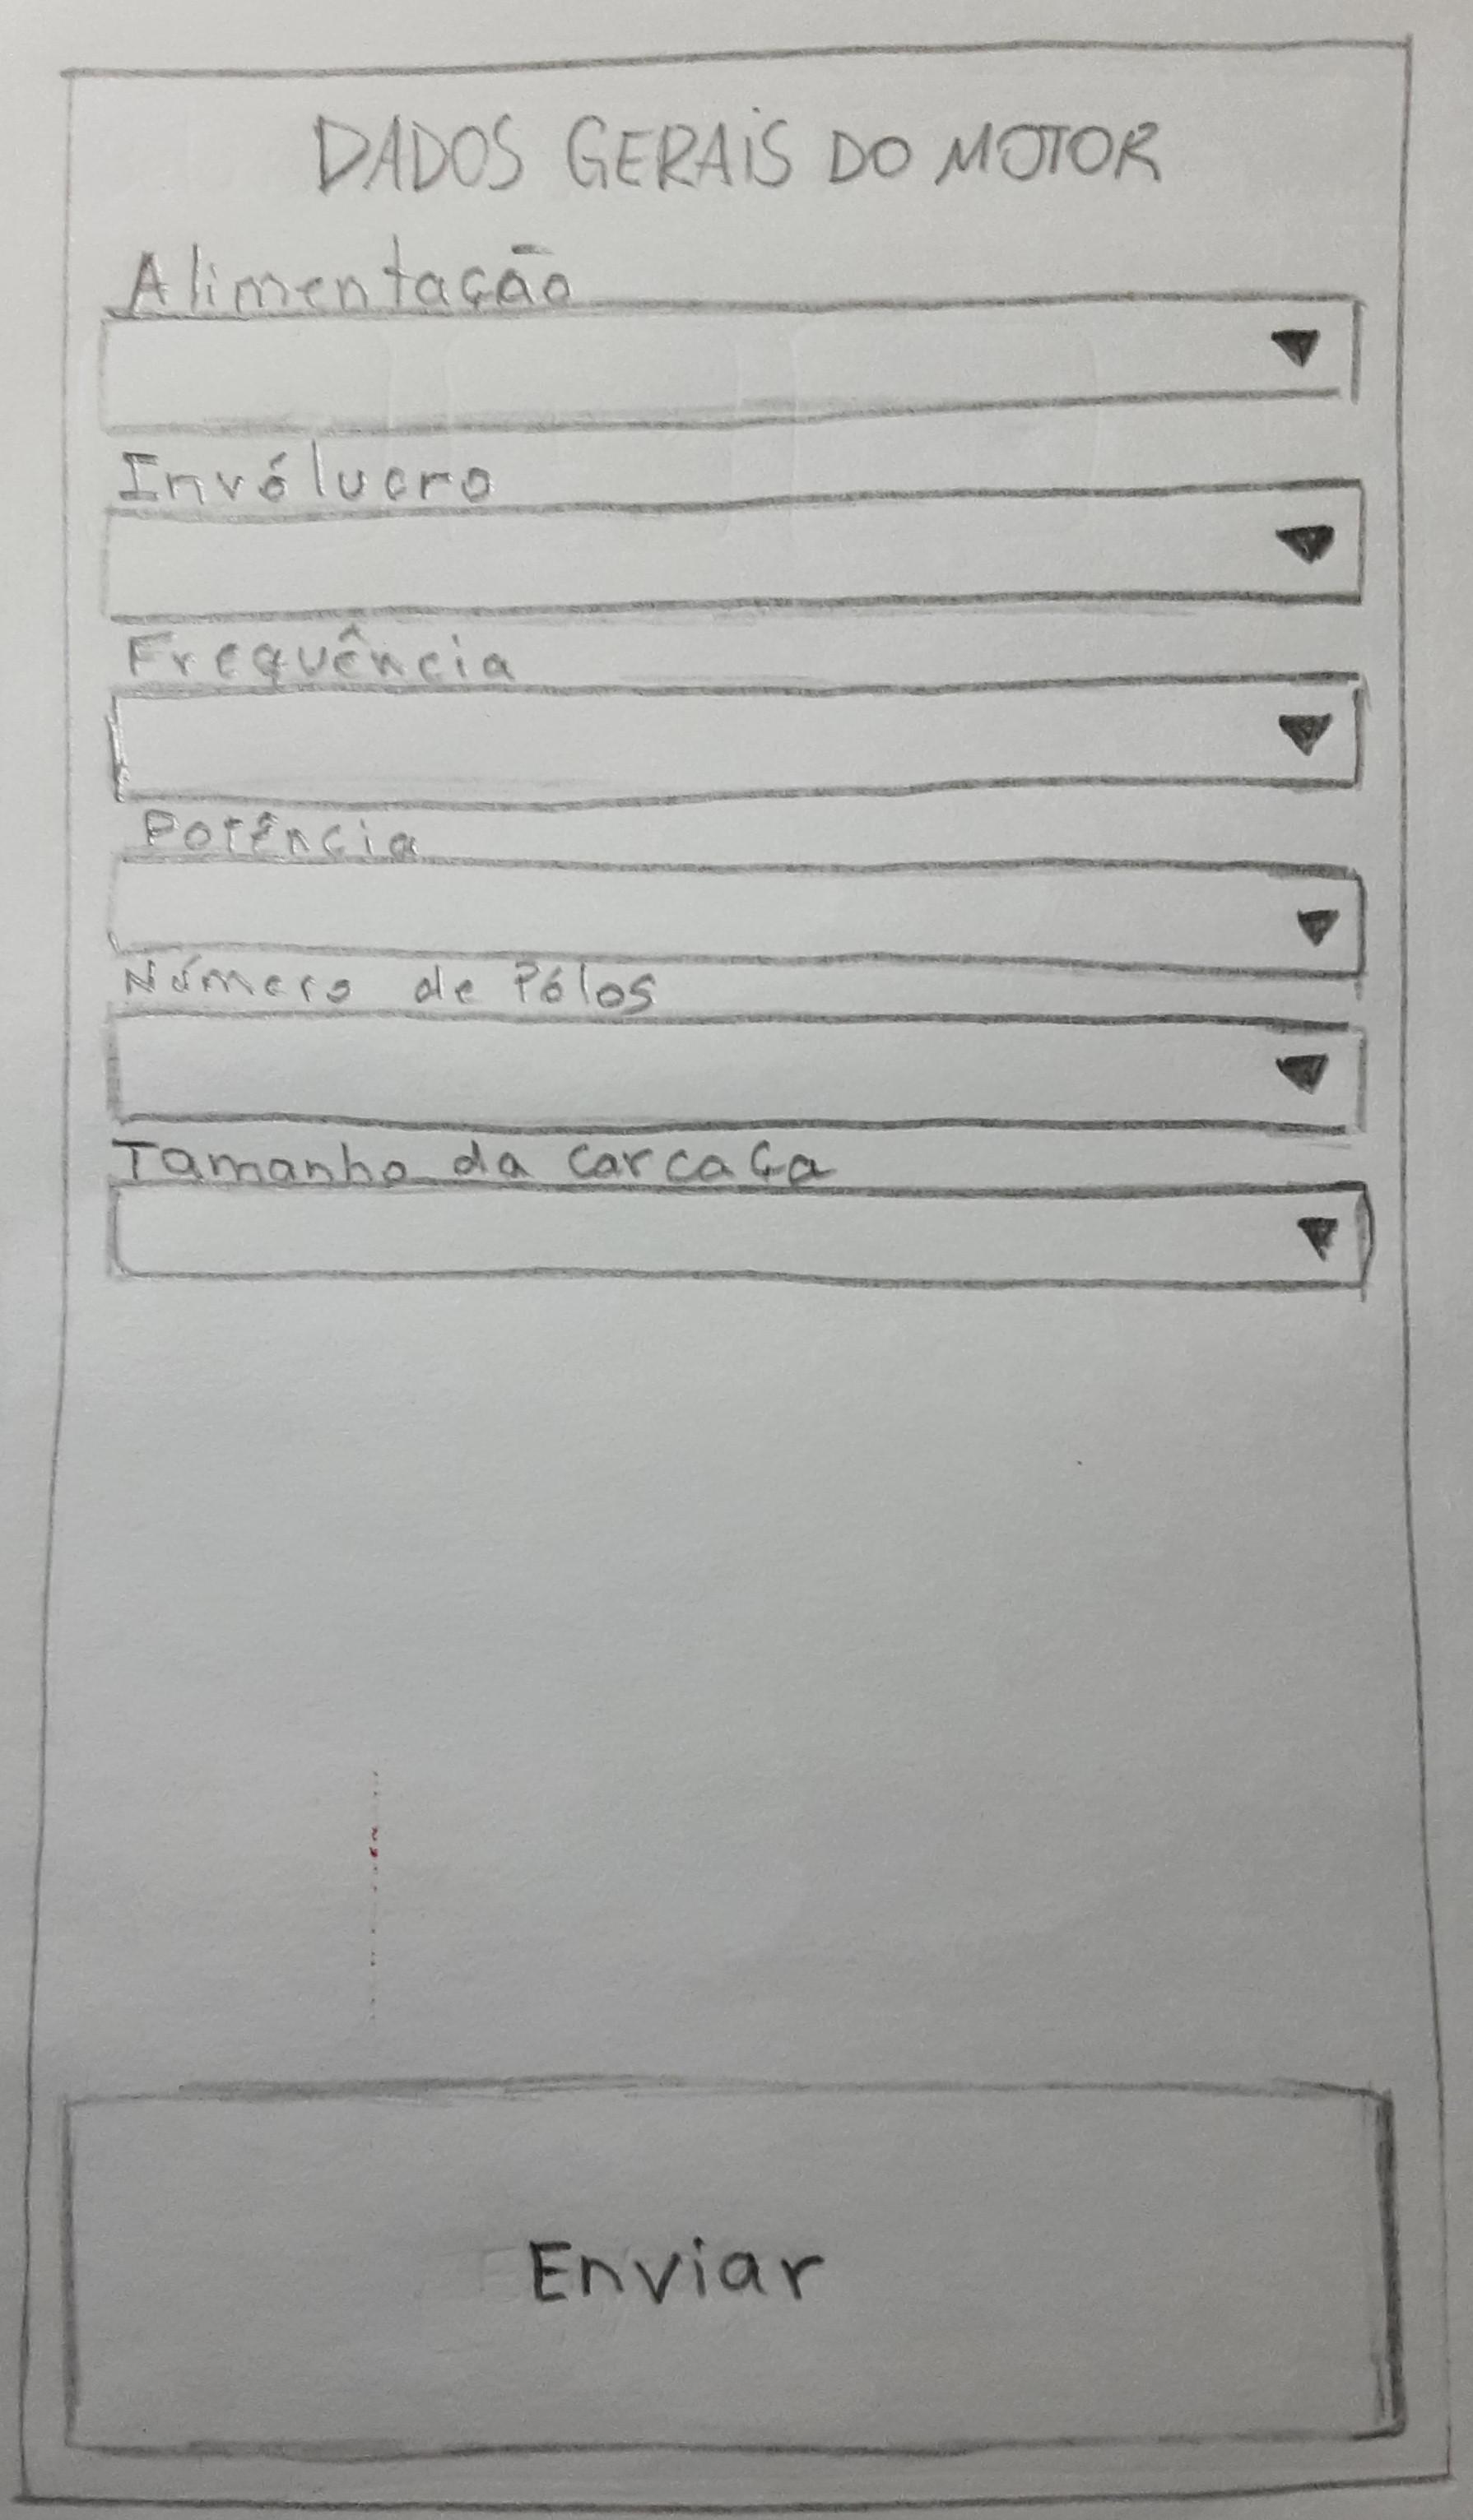 DADOS GERAIS DO MOTOR
Alimentação
Invólucro
Frequência
Potência
Número de Pólos
Tamanho da carcaça
Enviar